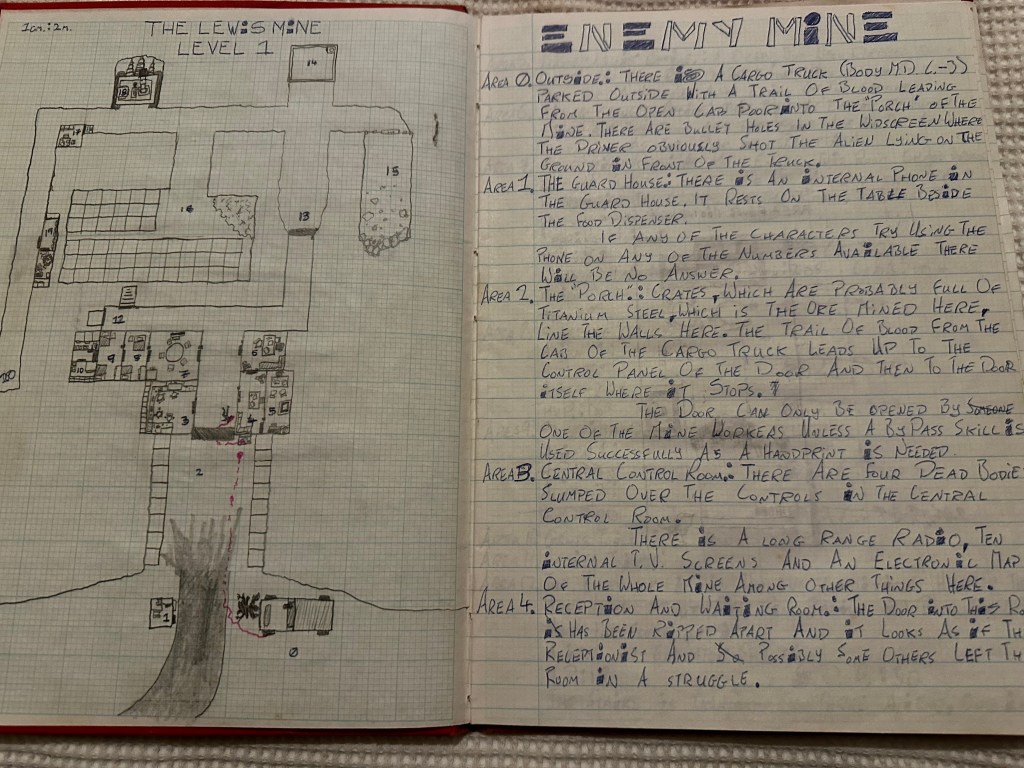 1cm.:2m.
THE LEWIS MINE
LEVEL 1
14
18
17
15
16
13
19
12
20
10
9
8
7
6
3
4
5
2
1
0
ENEMY MINE
AREA 0. OUTSIDE.: THERE IS A CARGO TRUCK (BODY MD (.-3))
PARKED OUTSIDE WITH A TRAIL OF BLOOD LEADING
FROM THE OPEN CAB DOOR INTO THE "PORCH" OF THE
MINE. THERE ARE BULLET HOLES IN THE WIDSCREEN WHERE
THE DRIVER OBVIOUSLY SHOT THE ALIEN LYING ON THE
GROUND IN FRONT OF THE TRUCK.
AREA 1. THE GUARD HOUSE.: THERE IS AN INTERNAL PHONE IN
THE GUARD HOUSE. IT RESTS ON THE TABLE BESIDE
THE FOOD DISPENSER.
IF ANY OF THE CHARACTERS TRY USING THE
PHONE ON ANY OF THE NUMBERS AVAILABLE THERE
WILL BE NO ANSWER.
AREA 2. THE "PORCH".: CRATES, WHICH ARE PROBABLY FULL OF
TITANIUM STEEL, WHICH IS THE ORE MINED HERE,
LINE THE WALLS HERE. THE TRAIL OF BLOOD FROM THE
CAB OF THE CARGO TRUCK LEADS UP TO THE
CONTROL PANEL OF THE DOOR AND THEN TO THE DOOR
ITSELF WHERE IT STOPS.
THE DOOR CAN ONLY BE OPENED BY SOMEONE
ONE OF THE MINE WORKERS UNLESS A BYPASS SKILL IS
USED SUCCESSFULLY AS A HANDPRINT IS NEEDED.
AREA 3. CENTRAL CONTROL ROOM.: THERE ARE FOUR DEAD BODIE
SLUMPED OVER THE CONTROLS IN THE CENTRAL
CONTROL ROOM.
THERE IS A LONG RANGE RADIO, TEN
INTERNAL T.V. SCREENS AND AN ELECTRONIC MAP
OF THE WHOLE MINE AMONG OTHER THINGS HERE.
AREA 4. RECEPTION AND WAITING ROOM.: THE DOOR INTO THIS RO
IS HAS BEEN RIPPED APART AND IT LOOKS AS IF TH
RECEPTIONIST AND SO POSSIBLY SOME OTHERS LEFT TH
ROOM IN A STRUGGLE.